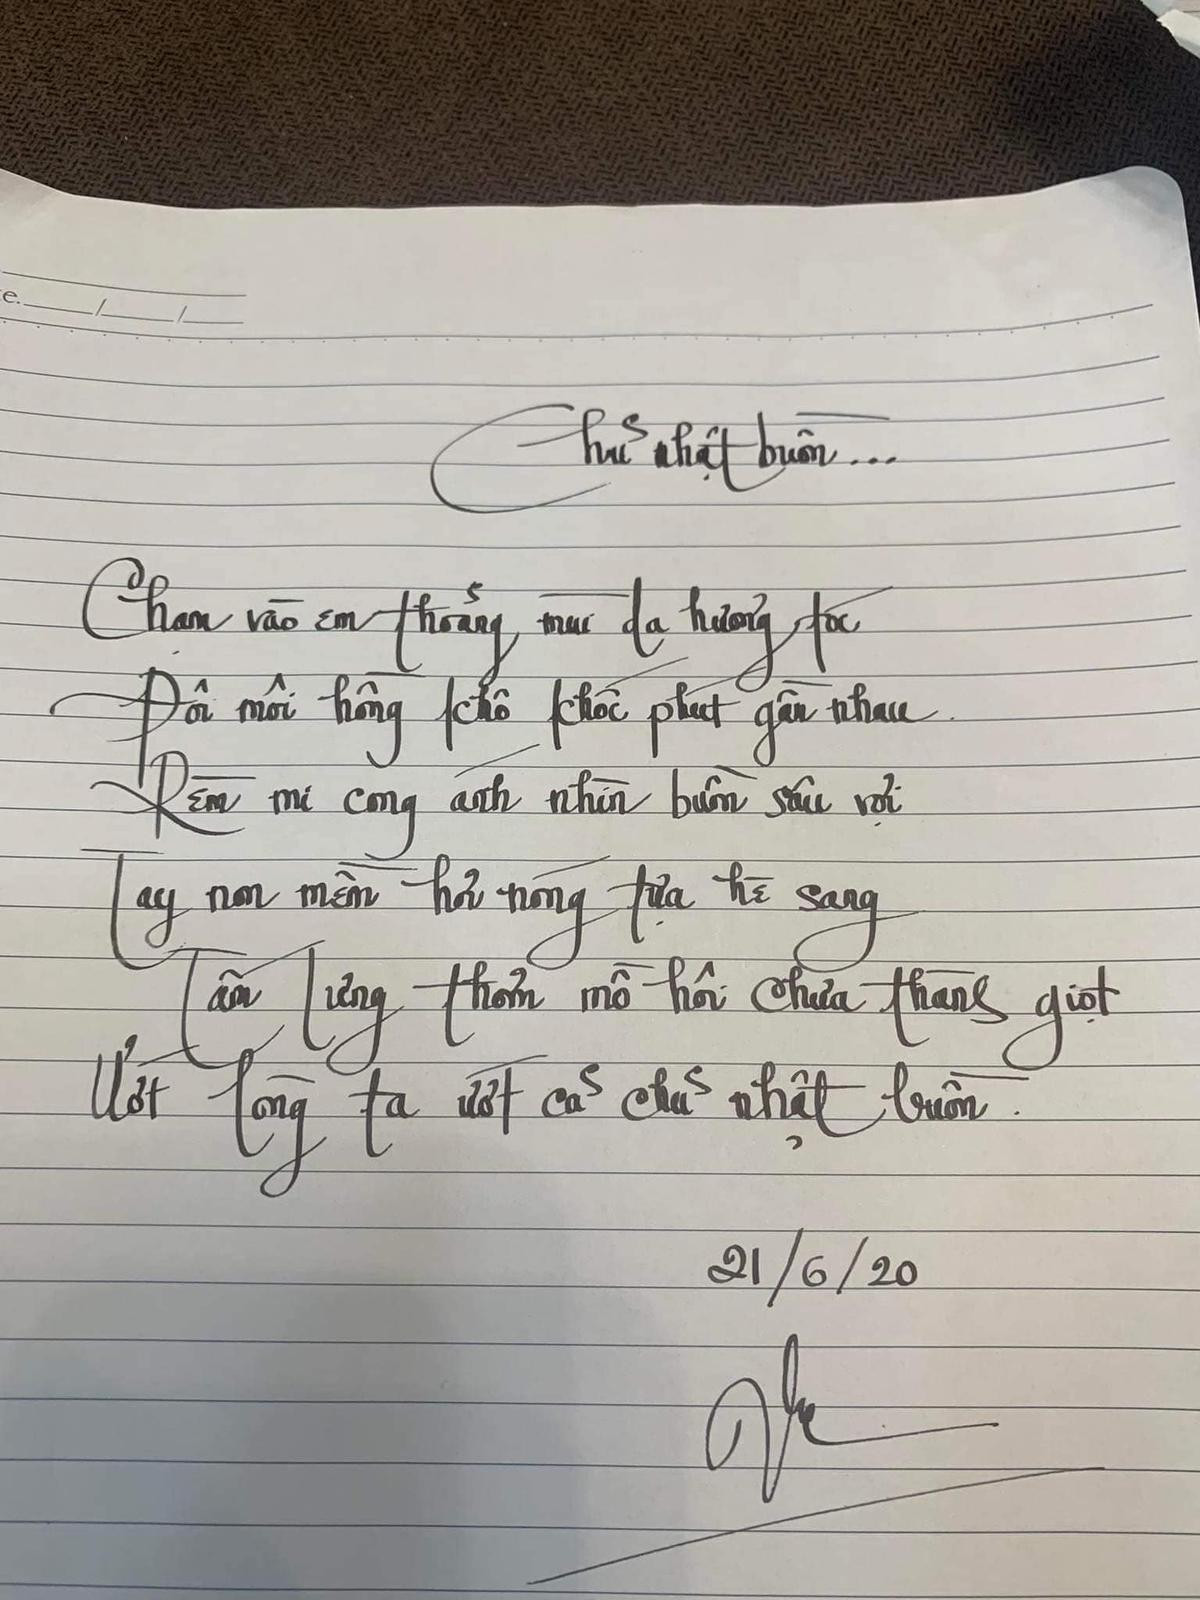 e. / /
Chủ nhật buồn...
Chạm vào em thoảng mùi da hương tóc
Đôi môi hồng khô khốc phút gần nhau.
Rèm mi cong anh nhìn buồn sâu vợi
Tay non mềm hơi nóng tựa hè sang
Tấm lưng thơm mồ hôi chưa thành giọt
Ướt lòng ta ướt cả chủ nhật buồn.
21/6/20